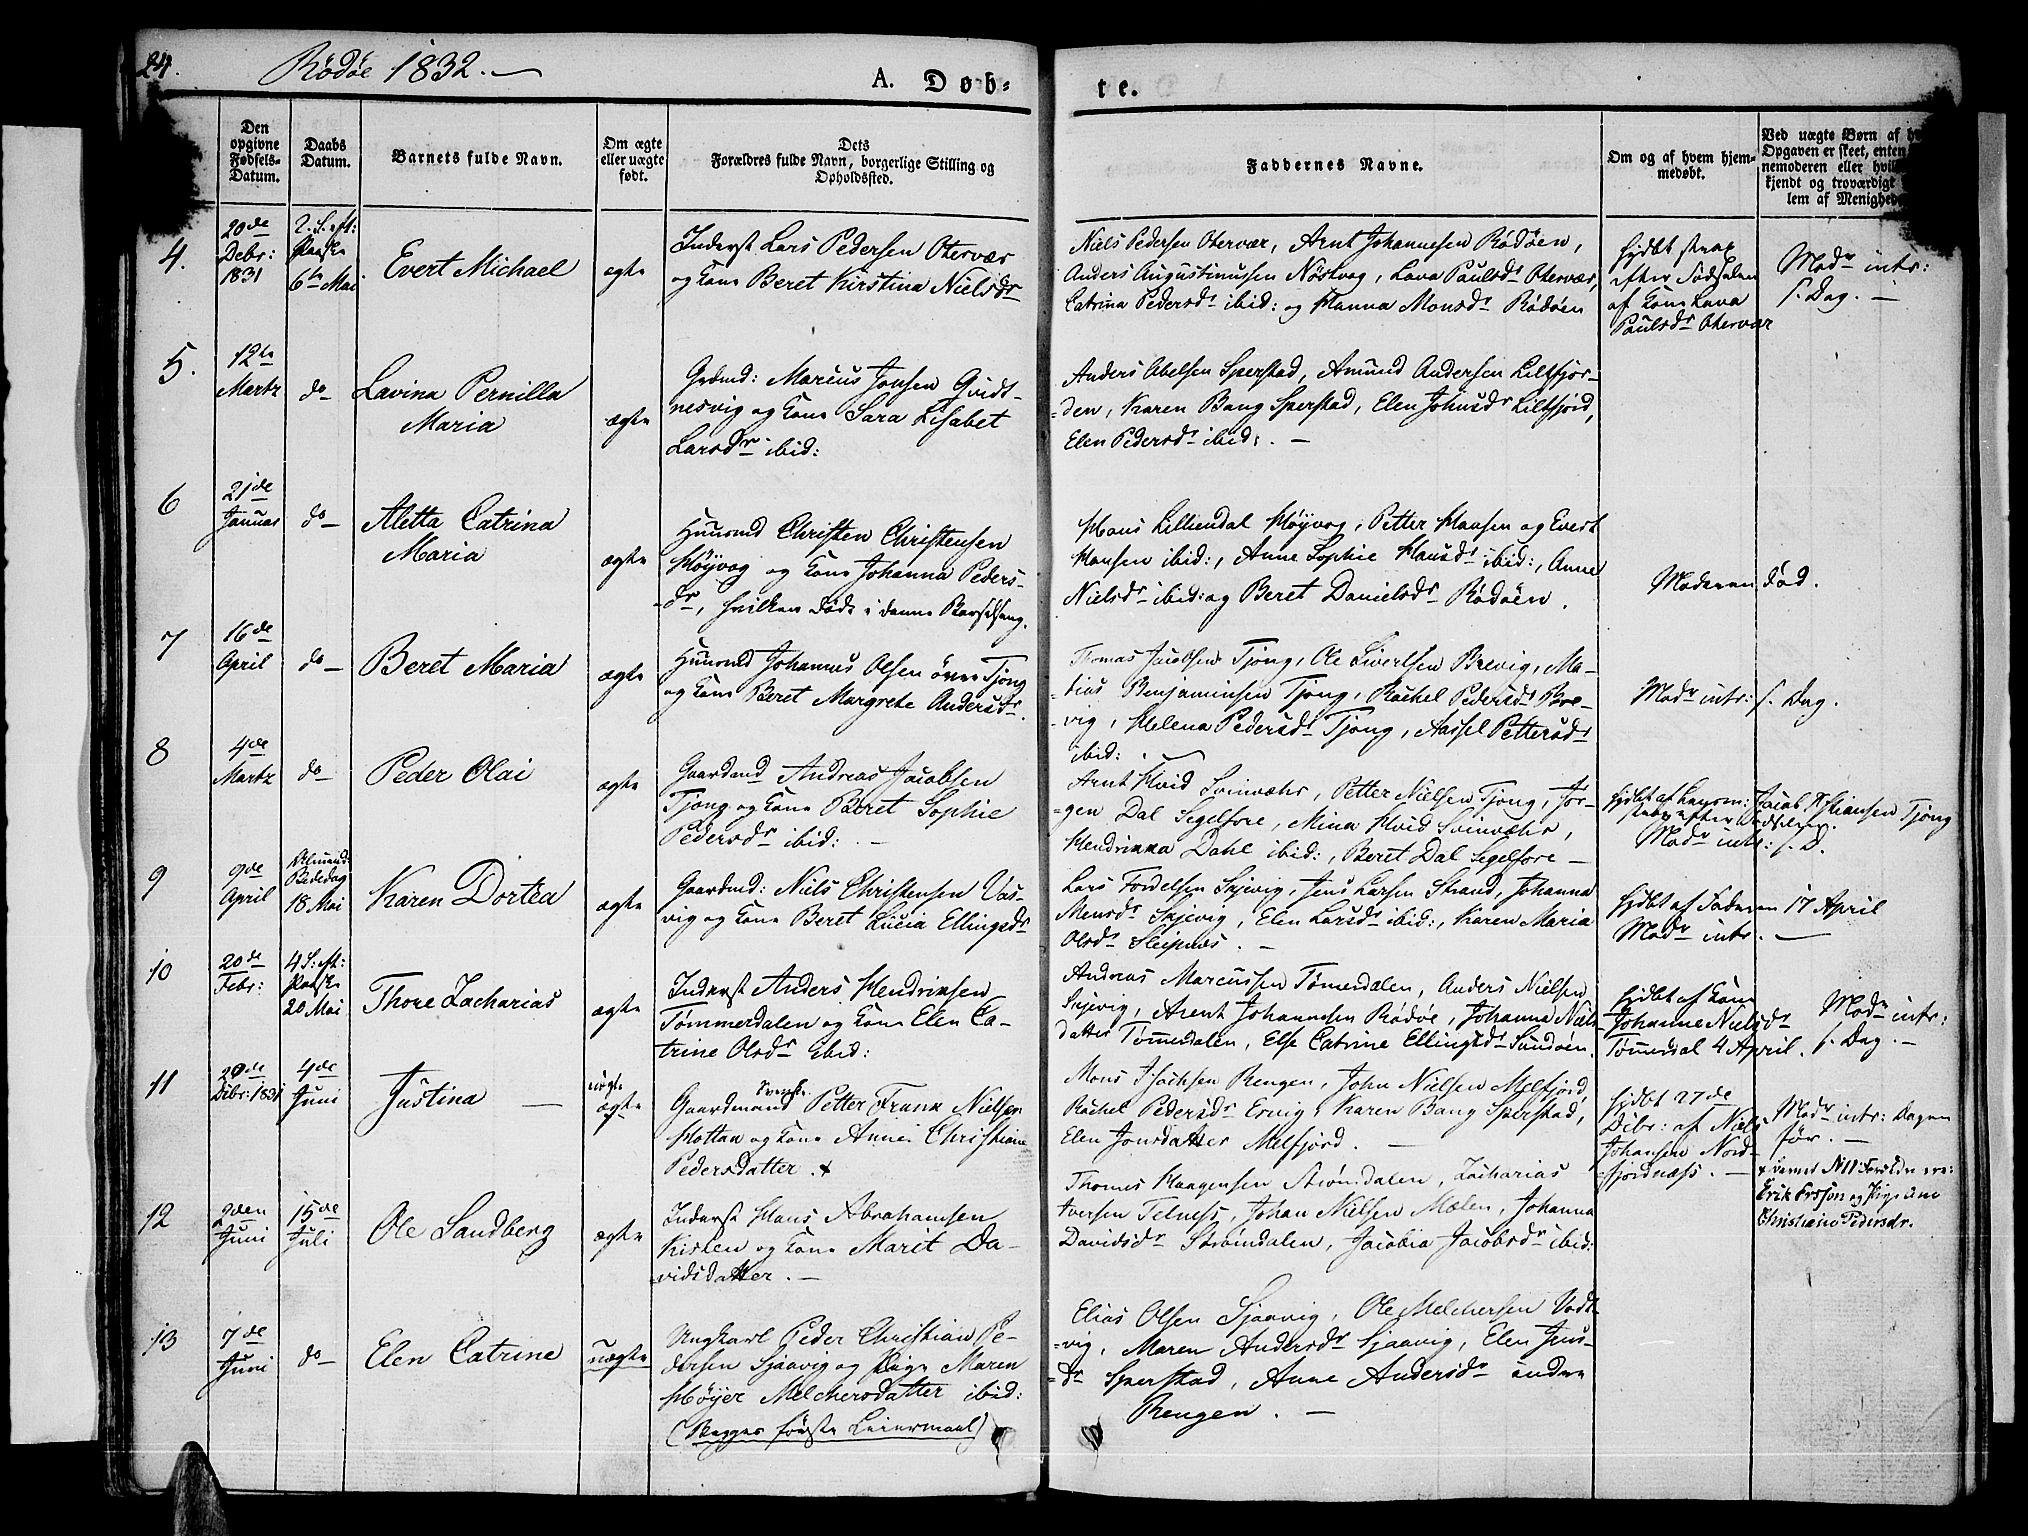 24.
Rödöe 1832.
A. Døb-
te.
Den opgivne Fødsels-Datum.
Daabs Datum.
Barnets fulde Navn.
Om ægte eller uægte født.
Dets
Forældres fulde Navn, borgerlige Stilling og Opholdssted.
Faddernes Navne.
Om og af hvem hjem-
medøbt.
Ved uægte Børn af
Opgaven er skeet, enten
nemoderen eller
kjendt og troværdigt
lem af Menighed
4.
20de
Debr:
1831
2. S. eft:
Paaske
6te Mai
Evert Michael
ægte
Inderst Lars Pedersen Otervær
og Kone Beret Kirstina Nielsdr
Niels Pedersen Otervær, Arnt Johannesen Rödöen,
Anders Augustinussen Nöstvog, Lava Paulsdr Otervær,
Catrina Pedersdr ibid: og Hanna Monsdr Rödöen
hjdbt strax
efter Födselen
af Kone Lava
Paulsdr Otervær
Modr intr:
s. Dag. —
5.
12te
Martz
do
Lavina Pernilla
Maria
ægte
Grdmd: Marcus Jonsen Gvidt-
nesvig og Kone Sara Lisabet
Larsdr ibid:
Anders Abelsen Sperstad, Amund Andersen Liltfjor-
den, Karen Bang Sperstad, Elen Johnsdr Liltfjord,
Elen Pedersdr ibid: —
6
21de
Januar
do
Aletta Catrina
Maria
ægte
Huusmd Christen Christensen
Höyvog og Kone Johanna Peders-
dr, hvilken döde i denne Barselseng.
Hans Lilliendal Höyvog, Petter Hansen og Evert
Hansen ibid:, Anne Sophie Hansdr ibid:, Anne
Nielsdr ibid: og Beret Danielsdr Rödöen.
Moderen död.
7
16de
April
do
Beret Maria
ægte
Huusmd Johannes Olsen övre Tjong
og Kone Beret Margrete Andersdr.
Thomas Jacobsen Tjong, Ole Sivertsen Brevig, Ma-
tius Benjaminsen Tjong, Rachel Pedersdr Bre-
vig, Helena Pedersdr Tjong, Aassel Pettersdr
ibid:
Modr intr: s. Dag.
8
4de
Martz
do
Peder Olai
ægte
Gaardmd Andreas Jacobsen
Tjong og Kone Beret Sophie
Pedersdr ibid: —
Arnt Hvid Svinvær, Petter Nielsen Tjong, Jör-
gen Dal Segelfore, Mina Hvid Svinvær,
Hendrikka Dahl ibid:, Beret Dal Segelfore —
hjdbt af Jacob Tjong
strax efter Födselen.
Modr intr: s. D.
9
9de
April
Almind:
Bededag
18 Mai
Karen Dortea
ægte
Gaardmd: Niels Christensen Vas-
vig og Kone Beret Lucia Ellingsdr
Lars Tordelsen Skjevig, Jens Larsen Strand, Johanna
Monsdr Skjevig, Elen Larsdr ibid:, Karen Maria
Olsdr Sleipnes. —
hjdbt af Faderen 17 April
Modr intr. —
10
20de
Febr:
4 S: eft:
Paaske
20 Mai
Thore Zacharias
ægte
Inderst Anders Hendriksen
Tömmerdalen og Kone Elen Ca-
trine Olsdr ibid:
Andreas Marcussen Tömerdalen, Anders Nielsen
Skjevig, Arent Johannesen Rödöe, Johanna Niels
datter Tömerdalen, Else Catrine Ellingsdr Sundöen.
hjdbt af Kone
Johanne Nielsdr
Tömerdal 4 April.
Modr intr:
s. Dag. —
11
20de
Debr: 1831
4de
Juni
Justina —
uægte
ægte
Gaardmand Svensk Petter Frans Nielsen
Hottan og Kone Anne Christiane
Pedersdatter. +
Mons Isachsen Rengen, John Nielsen Melfjord
Rachel Pedersdr Esvig, Karen Bang Sperstad,
Elen Jonsdatter Melfjord. —
hjdbt 27de
Debr: af Niels
Johansen Nord-
fjordnæss. —
Modr intr: Dagen
för. —
+ Barnet N 11 Forældre ere:
Erik Ersson og Pige
Christiane Pedersdr.
12
2den
Juni
15de
Juli
Ole Sandberg
ægte
Inderst Hans Abrahamsen
Kisten og Kone Marit Da-
vidsdatter. —
Thomes Haagensen Strömdalen, Zacharias
Iversen Telness, Johan Nielsen Mælen, Johanna
Davidsdr Strömdalen, Jacobia Jacobsdr ibid:
13
7de
Juni
do
Elen Catrine
uægte
Ungkarl Peder Christian Pe-
dersen Sjaavig og Pige Maren
Höyer Melchersdatter ibid:
(Begges förste Leiermaal)
Elias Olsen Sjaavig, Ole Melchersen Vadt-
vig, Maren Andersdr Sjaavig, Elen Jens-
dr Sperstad, Anne Andersdr indre
Rengen. —